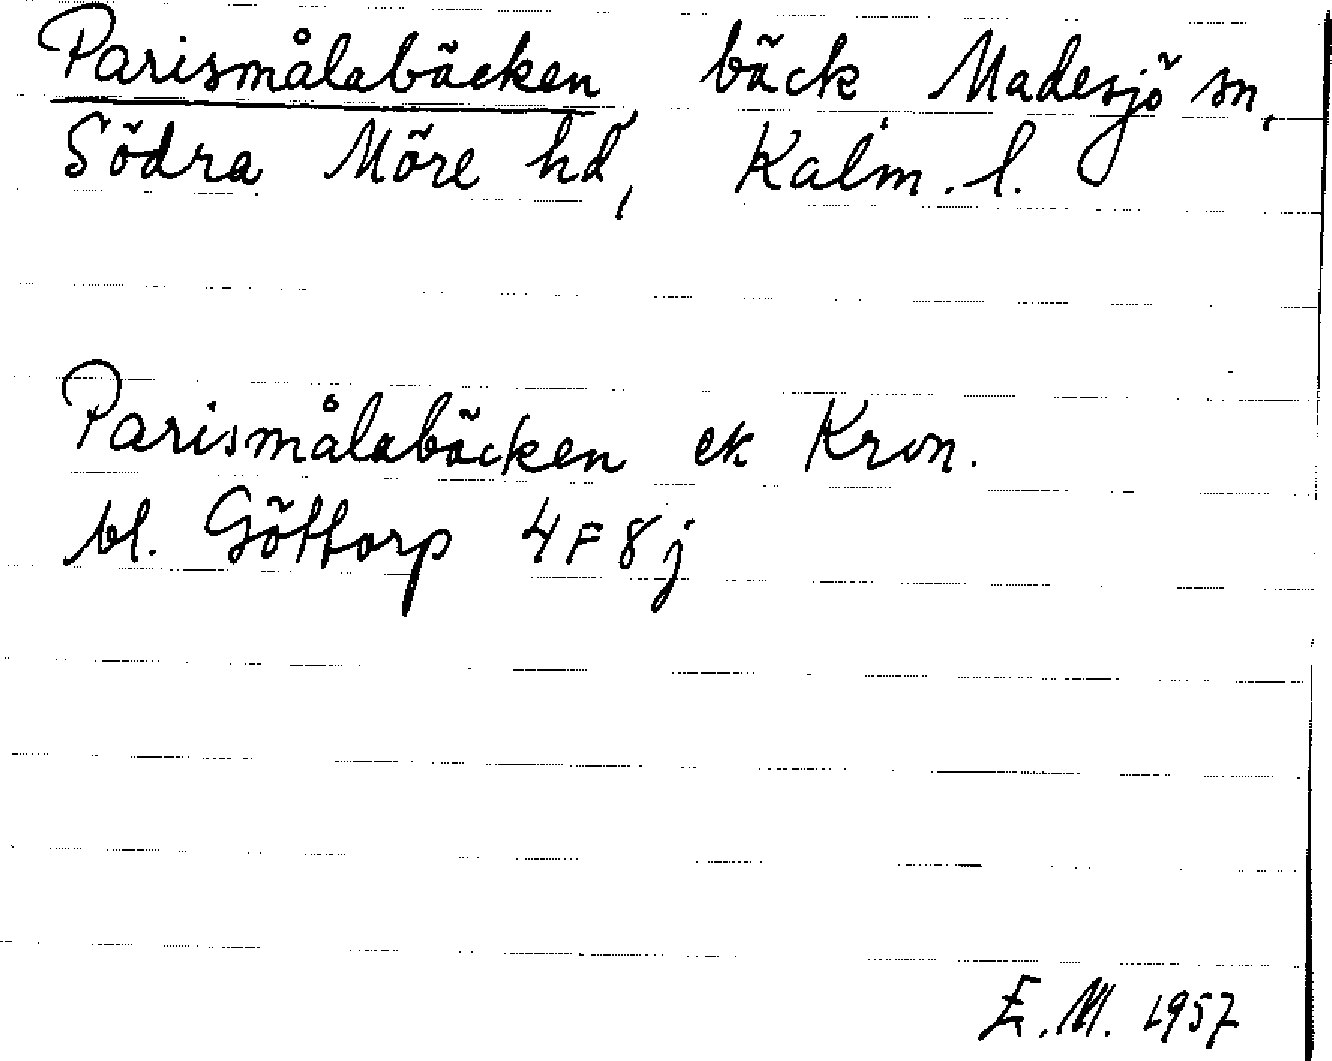 Parismålabäcken, bäck Madesjö sn,
Södra Möre hd, Kalm. l.
Parismålabäcken ek Kron.
bl. Göttorp 4F8j
E.M. 1957